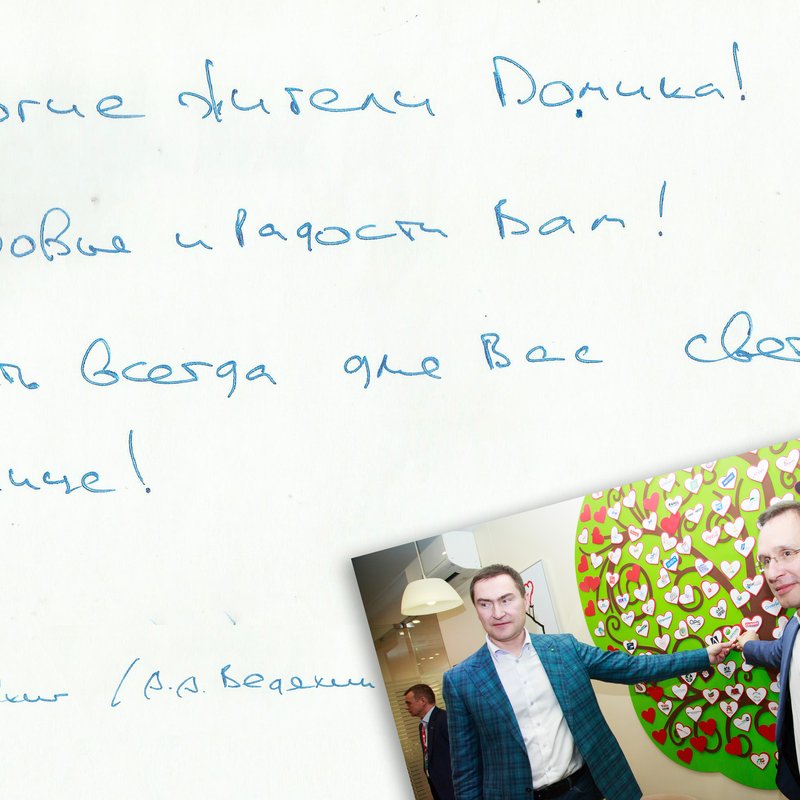 огие жители Домика!
ровья и Радости Вам!
ть всегда для Вас свет
нце!
/А.А. Ведехин